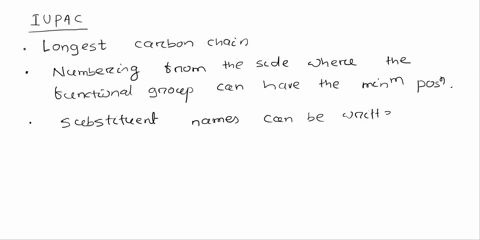 IUPAC
· Longest carbon chain
· Numbering from the side where the
functional group can have the minᵐ posⁿ.
· substituent names can be writt